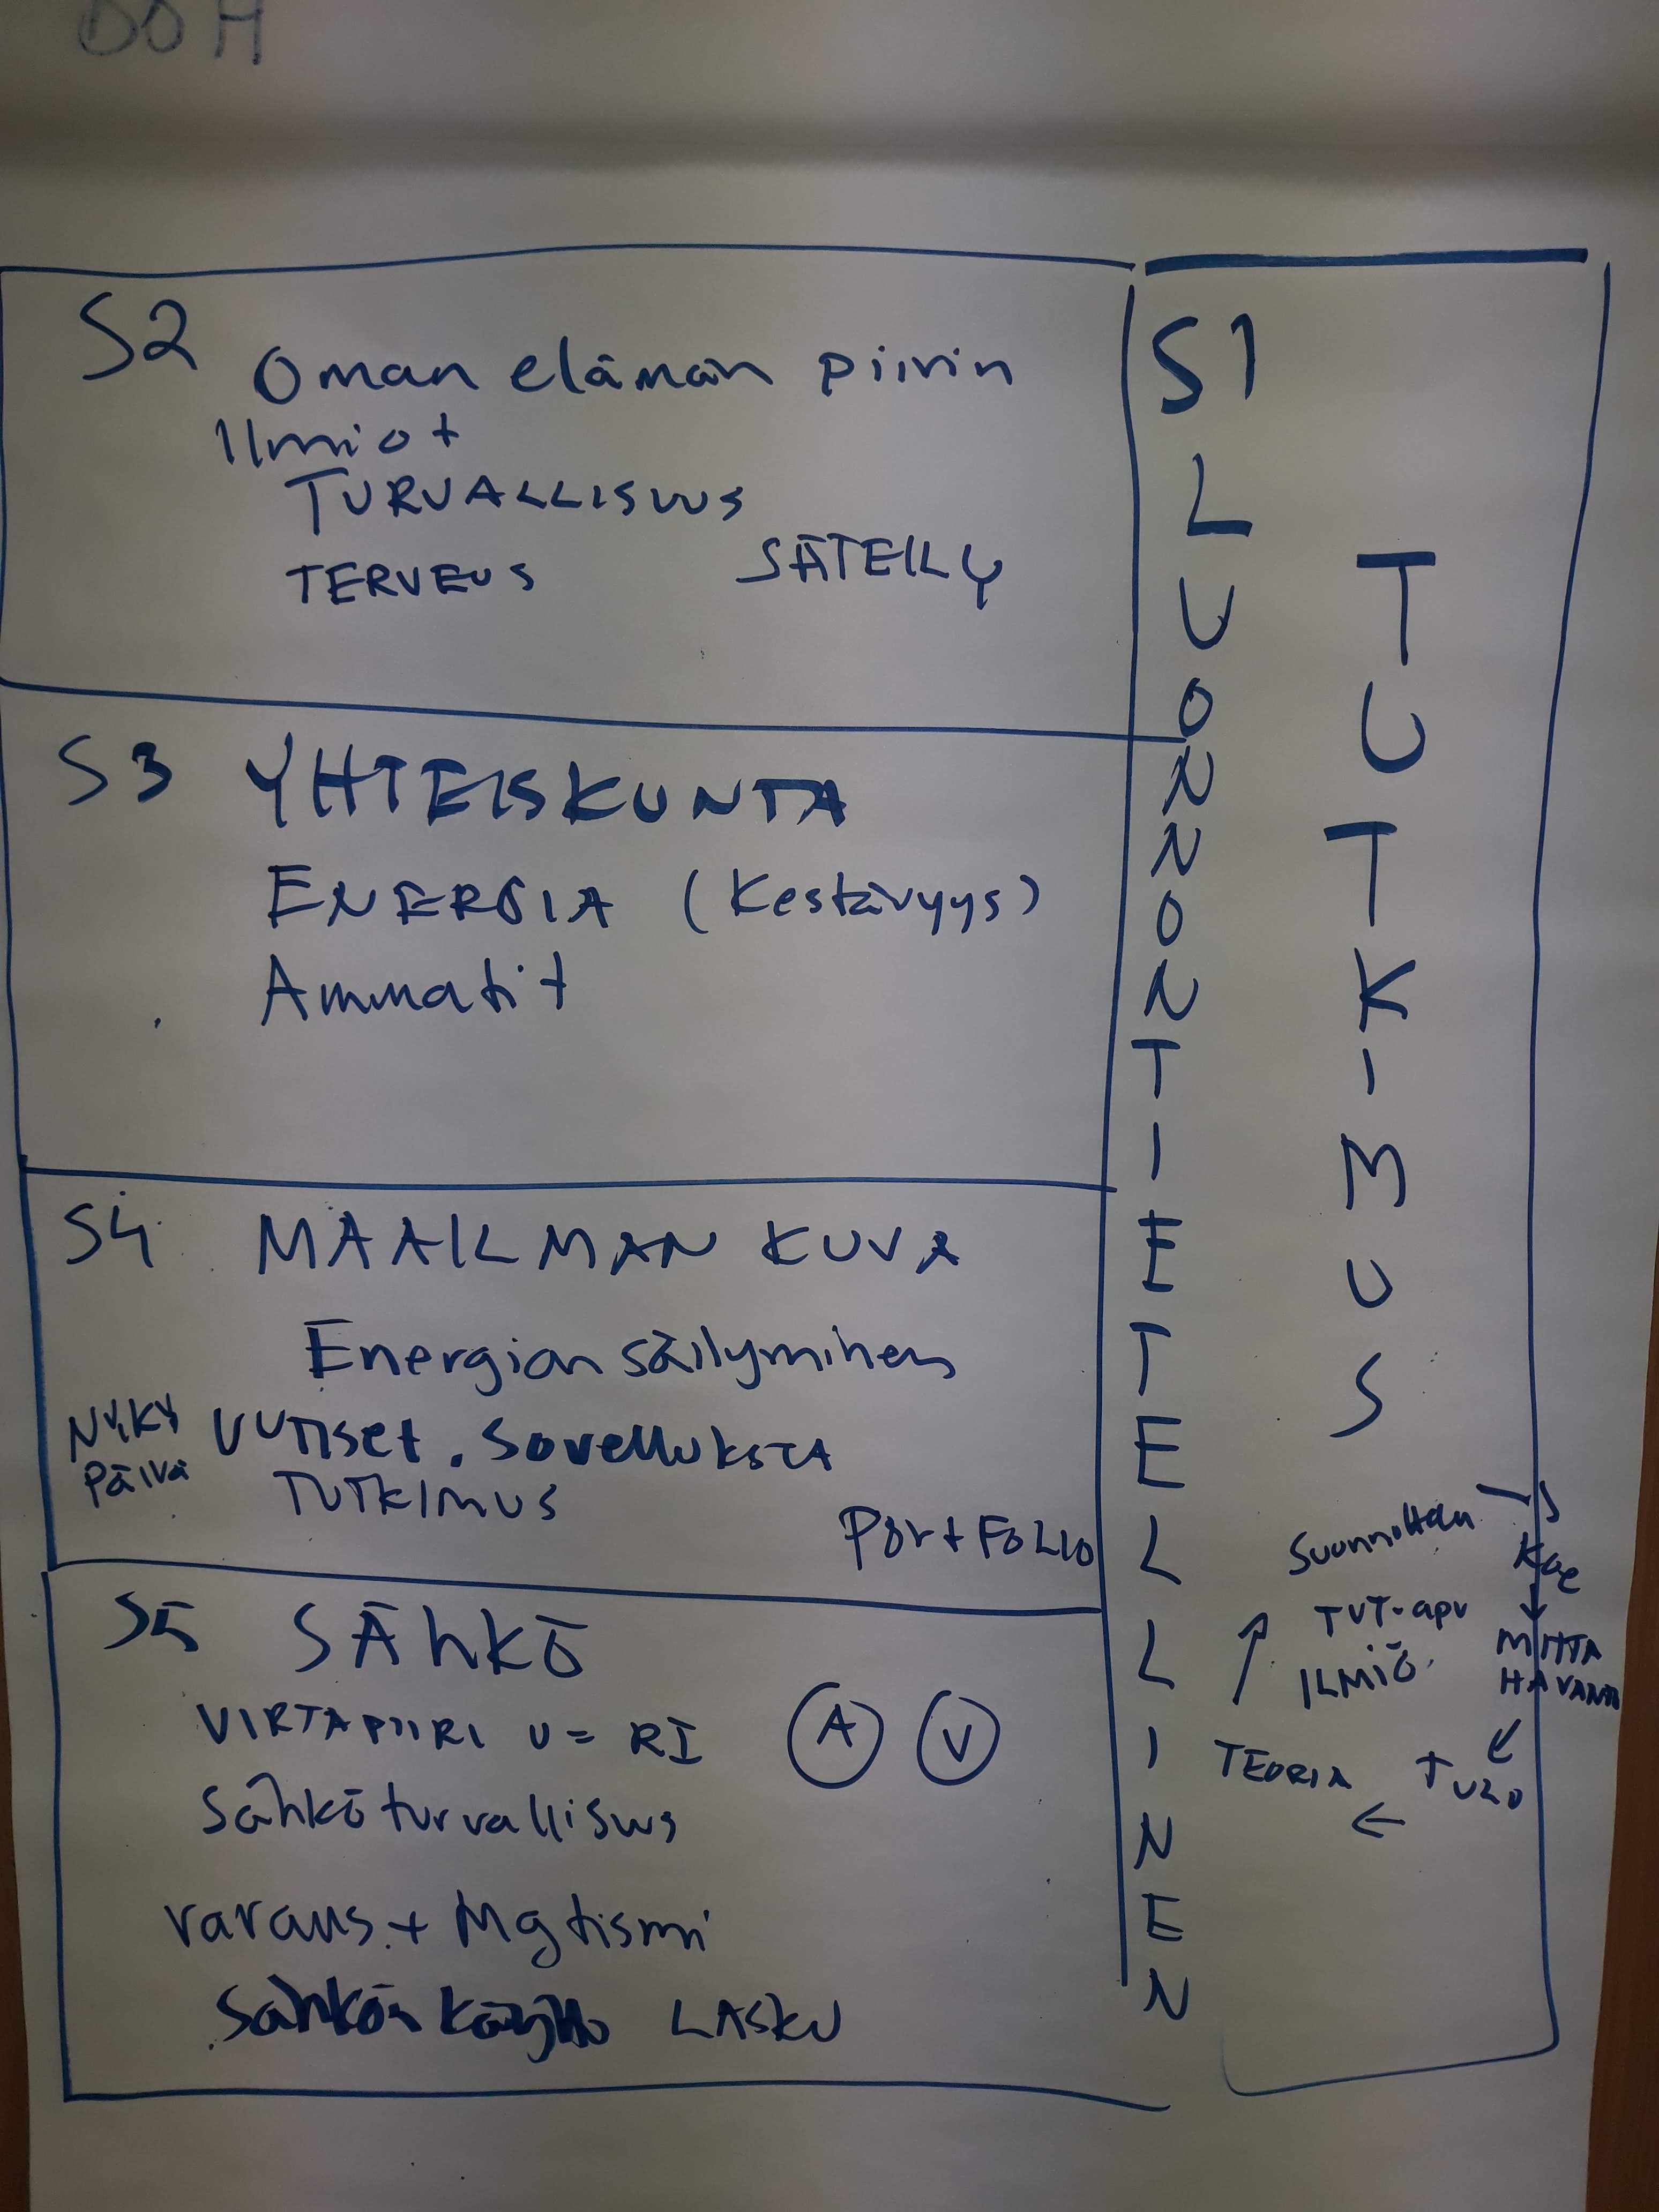 S2 Oman elämän piirin
Ilmiöt
TURVALLISUUS
TERVEUS SÄTEILY
S3 YHTEISKUNTA
ENERGIA (Kestävyys)
Ammatit
S4 MAAILMAN KUVA
Energian säilyminen
NYKY
PÄIVÄ
UUTISET. Sovelluksia
TUTKIMUS
PORTFOLIO
S5 SÄHKÖ
VIRTAPIIRI U = RI A V
Sähköturvallisuus
varaus + Mgtismi
Sähkön käyttö LASKU
S1
LUONNONTIETEELLINEN
TUTKIMUS
Suunnittelu → Koe
↓
TVT-apu
ILMIÖ
MITTA
HAVAN
↙
TULO
←
TEORIA
↑